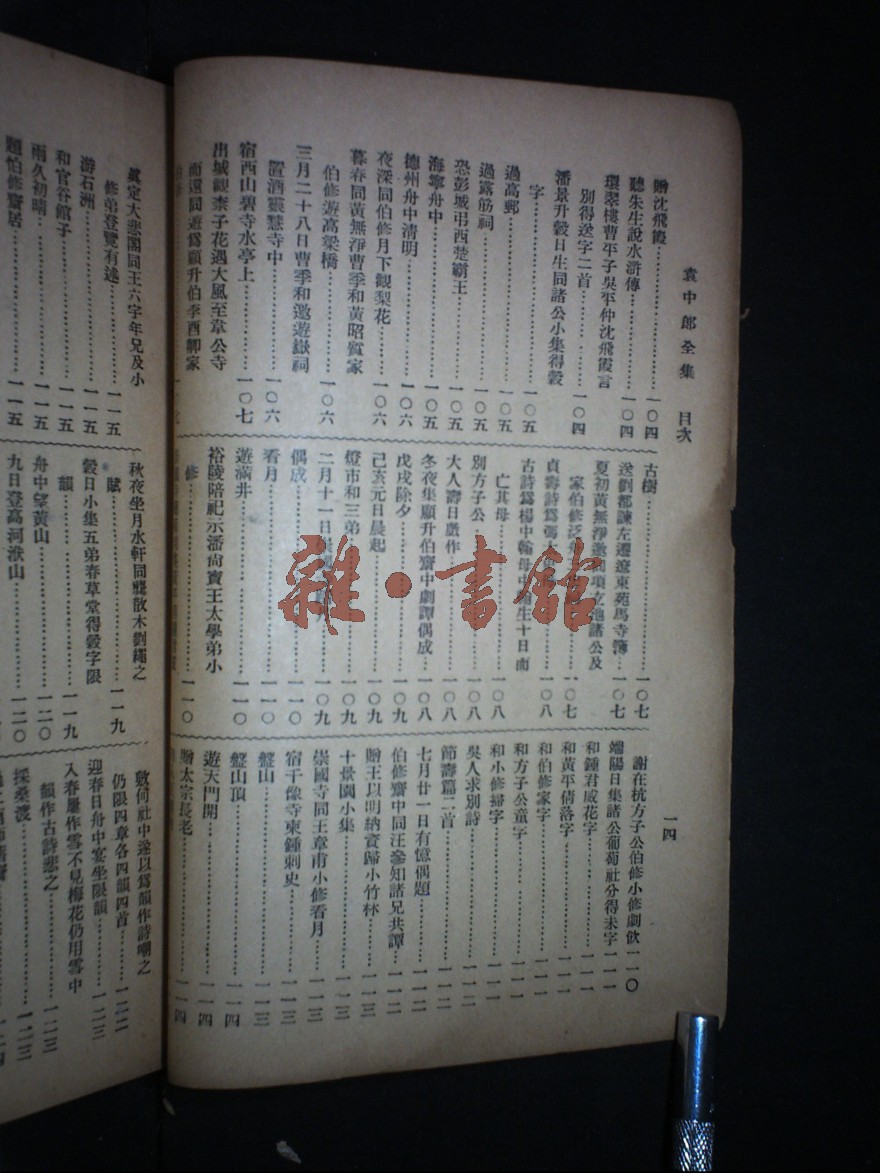 袁中郎全集　目次
一四
贈沈飛霞……一〇四
聽朱生說水滸傳……一〇四
環翠樓曹平子吳平仲沈飛霞言
別得送字二首……一〇四
潘景升穀日生同諸公小集得穀
字……一〇五
過高郵……一〇五
過露筋祠……一〇五
恐彭城弔西楚霸王……一〇五
海寧舟中……一〇五
德州舟中清明……一〇六
夜深同伯修月下觀梨花……一〇六
暮春同黃無淨曹季和黃昭質家
伯修遊高梁橋……一〇六
三月二十八日曹季和邀遊嶽祠
置酒靈慧寺中……一〇六
宿西山碧寺水亭上……一〇七
出城觀柰子花遇大風至韋公寺
而還同遊爲顧升伯李酉卿家
古樹……一〇七
送劉都諫左遷遼東苑馬寺簿……一〇七
夏初黃無淨邀同項立地諸公及
家伯修泛舟……一〇七
貞壽詩爲……一〇八
古詩爲楊中翰母中翰生十日而
亡其母……一〇八
別方子公……一〇八
大人壽日戲作……一〇八
冬夜集顧升伯齋中劇譚偶成……一〇八
戊戌除夕……一〇九
己亥元日晨起……一〇九
燈市和三弟……一〇九
二月十一日……一〇九
偶成……一一〇
看月……一一〇
遊滿井……一一〇
裕陵陪祀示潘尚寶王太學弟小
修……一一〇
謝在杭方子公伯修小修劇飲……一一〇
端陽日集諸公葡萄社分得未字……一一一
和鍾君威花字……一一一
和黃平倩落字……一一一
和伯修家字……一一一
和方子公童字……一一一
和小修掃字……一一一
吳人求別詩……一一二
節壽篇二首……一一二
七月廿一日有憶偶題……一一二
伯修齋中同汪參知諸兄共譚……一一二
贈王以明納資歸小竹林……一一三
十景園小集……一一三
崇國寺同王章甫小修看月……一一三
宿千像寺柬鍾刺史……一一三
盤山……一一三
盤山頂……一一四
遊天門開……一一四
贈太宗長老……一一四
眞定大悲閣同王六字年兄及小
修弟登覽有述……一一五
游石洲……一一五
和官谷館子……一一五
雨久初晴……一一五
題伯修齋居……一一五
秋夜坐月水軒同龔散木劉繩之
賦……一一九
穀日小集五弟春草堂得穀字限
韻……一一九
舟中望黃山……一二〇
九日登高河洑山……一二〇
敷伺社中遂以爲韻作詩嘲之
仍限四章各四韻四首……一二二
迎春日舟中宴坐限韻……一二三
入春屢作雪不見梅花仍用雪中
韻作古詩悲之……一二三
採桑渡……一二三
雜·書館